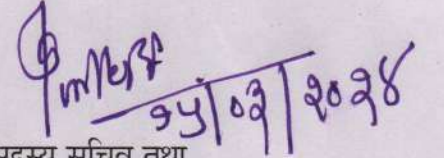 १५/०३/२०२४
सदस्य सचिव तथा